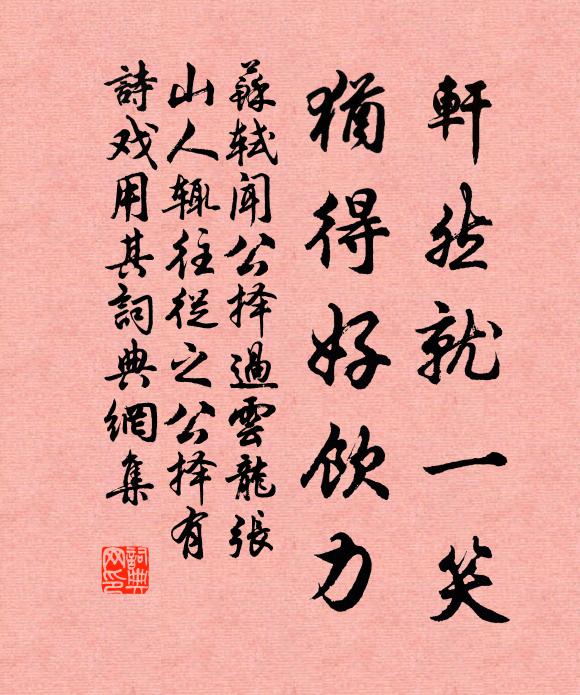 軒然就一笑
猶得好飲力
蘇軾聞公择過雲龍張
山人輒往從之公择有
詩戏用其詞典網集
詞典网印